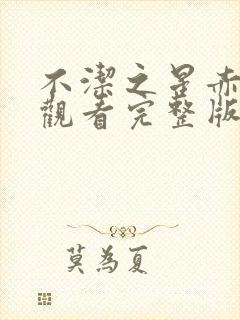 不潔之星赤
觀看完整版
莫為夏